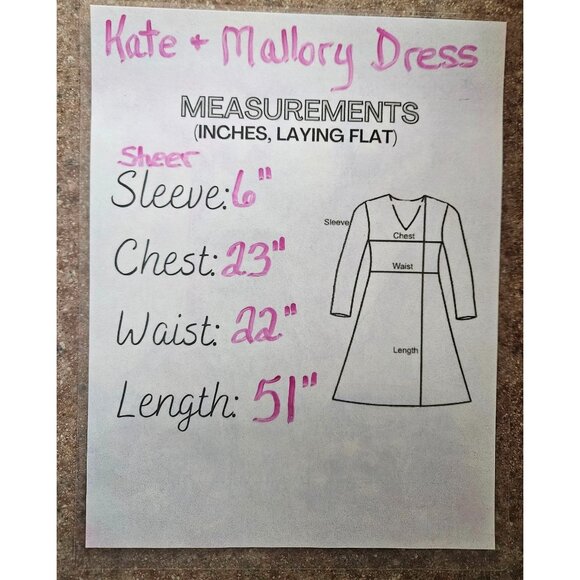 Kate + Mallory Dress
MEASUREMENTS
(INCHES, LAYING FLAT)
Sheer
Sleeve: 6"
Chest: 23"
Waist: 22"
Length: 51"
Sleeve
Chest
Waist
Length